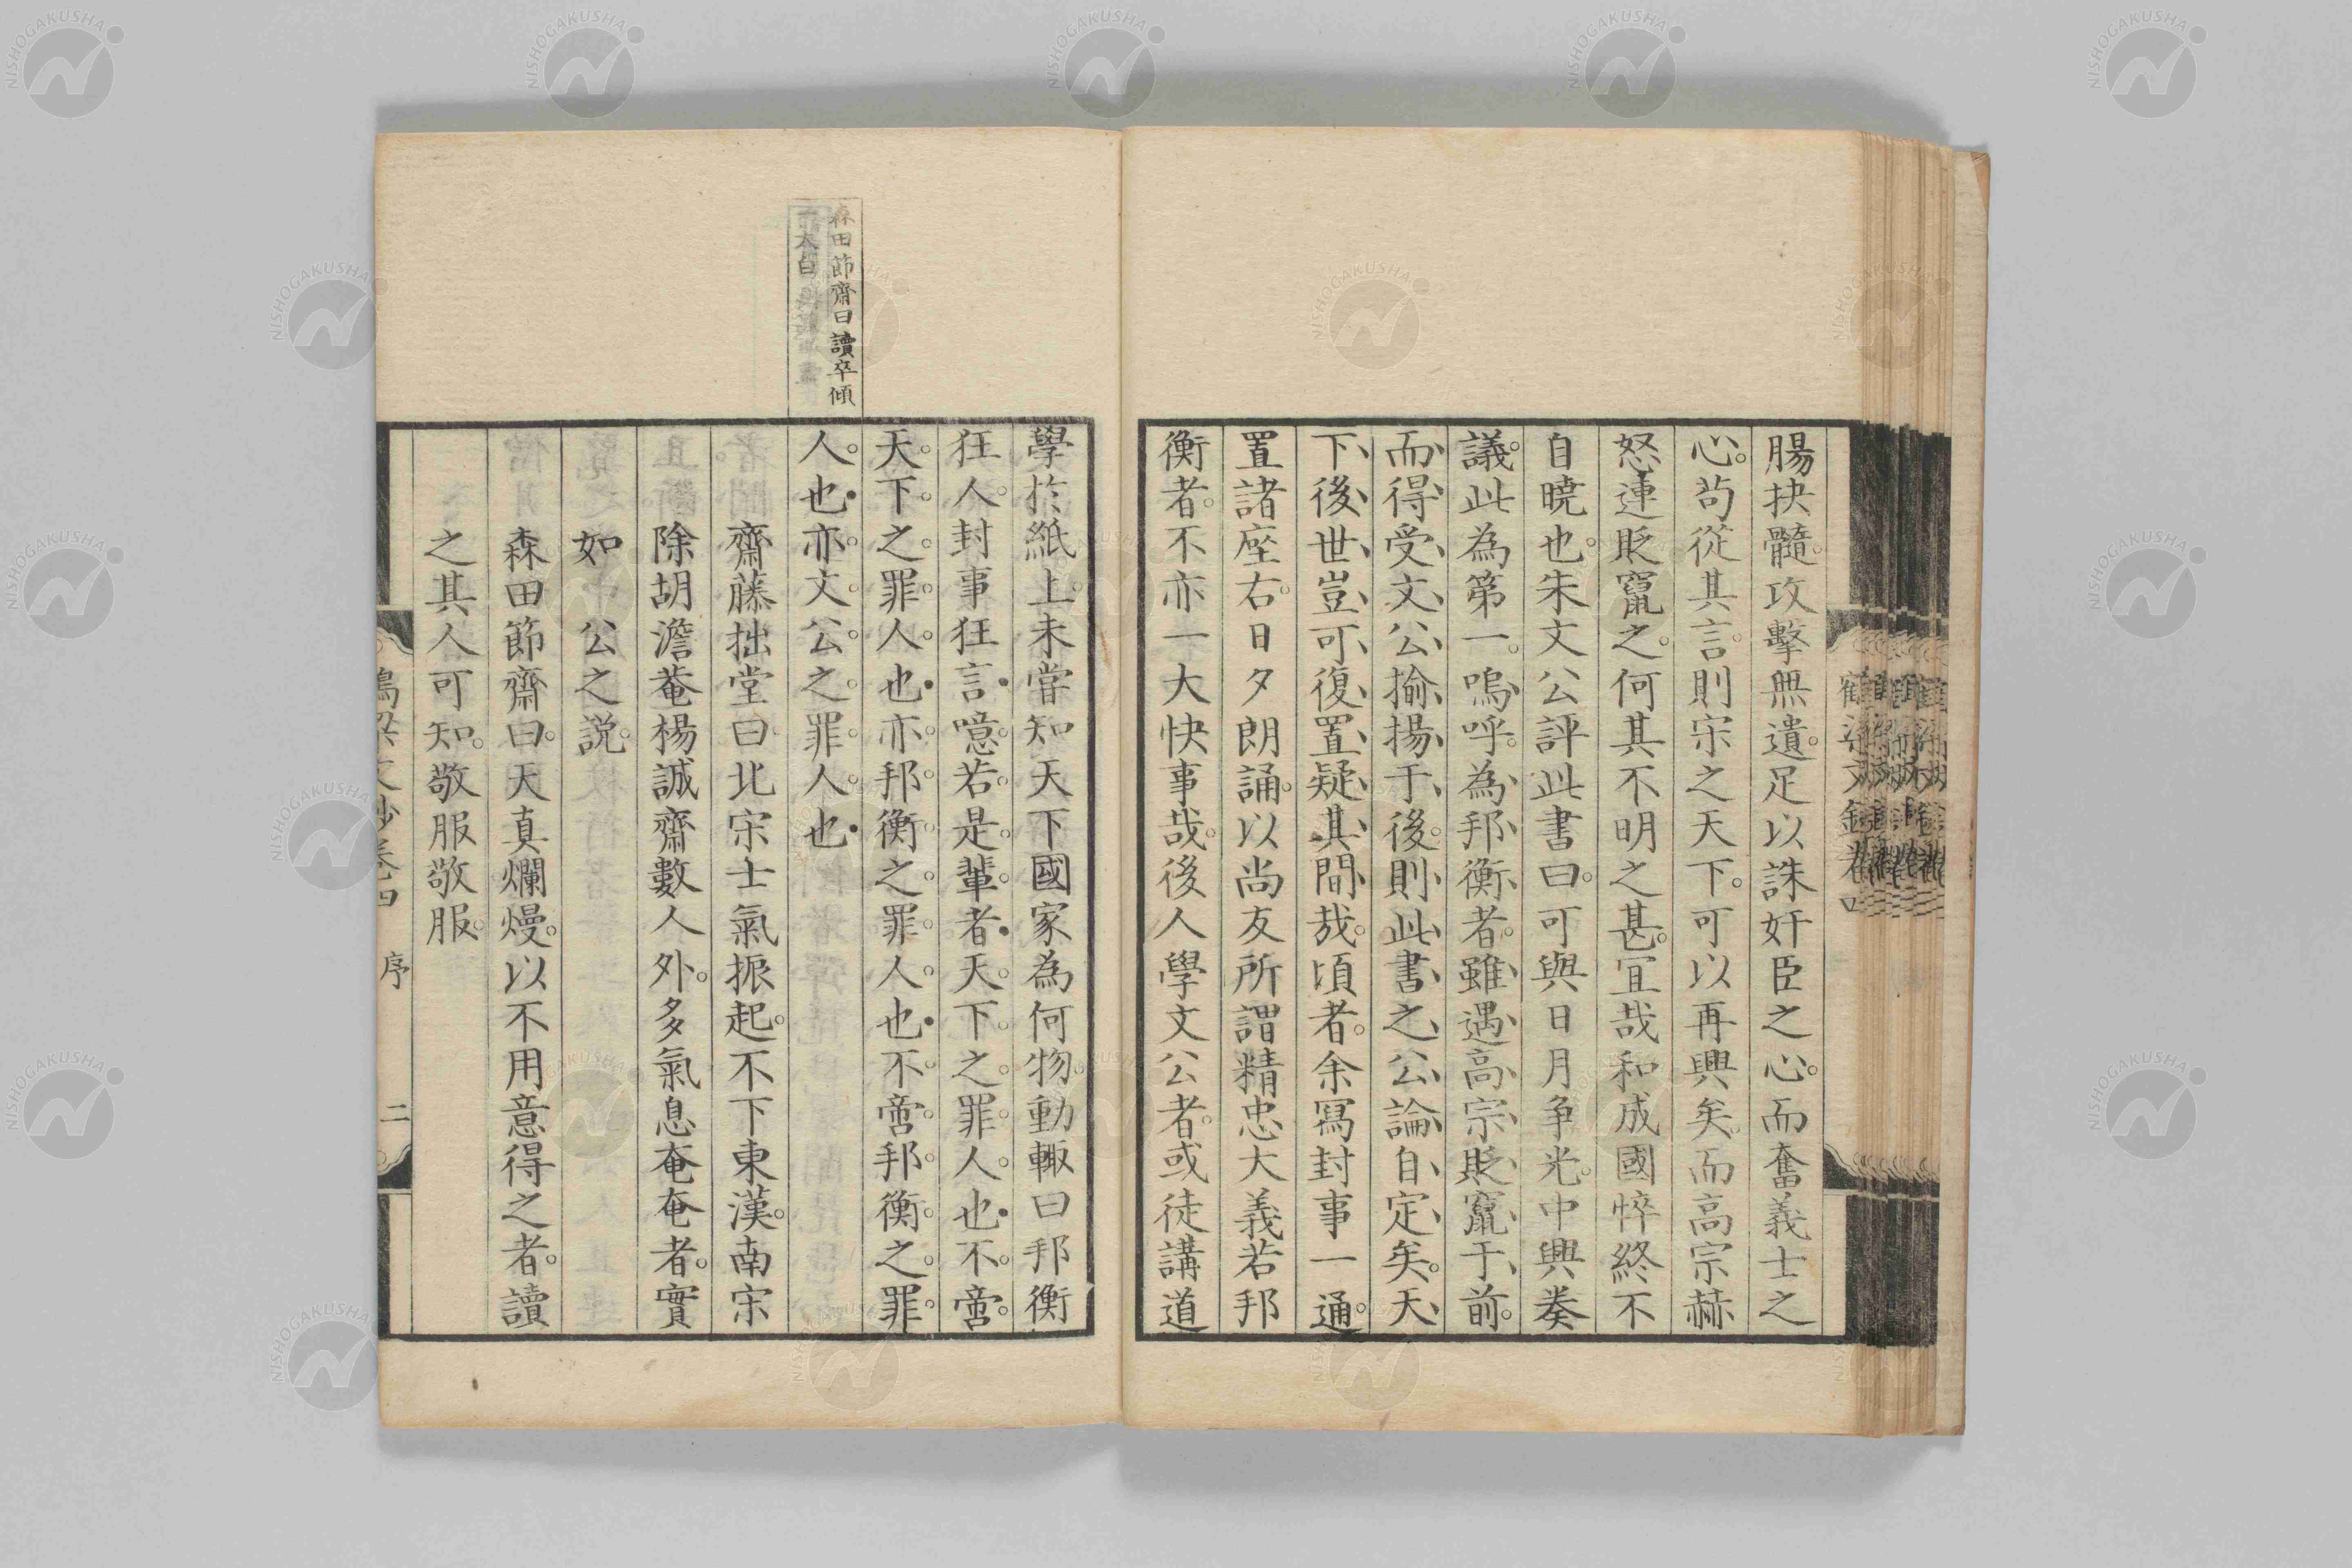 腸抉髓。攻擊無遺。足以誅奸臣之心。而奮義士之
心。苟從其言。則宋之天下。可以再興矣。而高宗赫
怒連貶竄之。何其不明之甚。宜哉和成國悴終不
自曉也。朱文公評此書曰。可與日月争光。中興奏
議。此為第一。嗚呼。為邦衡者。雖遇高宗貶竄于前。
而得受文公揄揚于後。則此書之公論自定矣。天
下後世。豈可復置疑其間哉。頃者。余寫封事一通。
置諸座右。日夕朗誦。以尚友所謂精忠大義若邦
衡者。不亦一大快事哉。後人學文公者。或徒講道
學於紙上。未嘗知天下國家為何物。動輙曰邦衡
狂人。封事狂言。噫。若是輩者。天下之罪人也。不啻
天下之罪人也。亦邦衡之罪人也。不啻邦衡之罪
人也。亦文公之罪人也
齋藤拙堂曰。北宋士氣振起。不下東漢。南宋
除胡澹菴楊誠齋數人外。多氣息奄奄者。實
如公之説。
森田節齋曰。天真爛熳。以不用意得之者。讀
之其人可知。敬服敬服。
森田節齋曰讀卒傾
大白
文鈔卷四 序 二
NISHOGAKUSHA